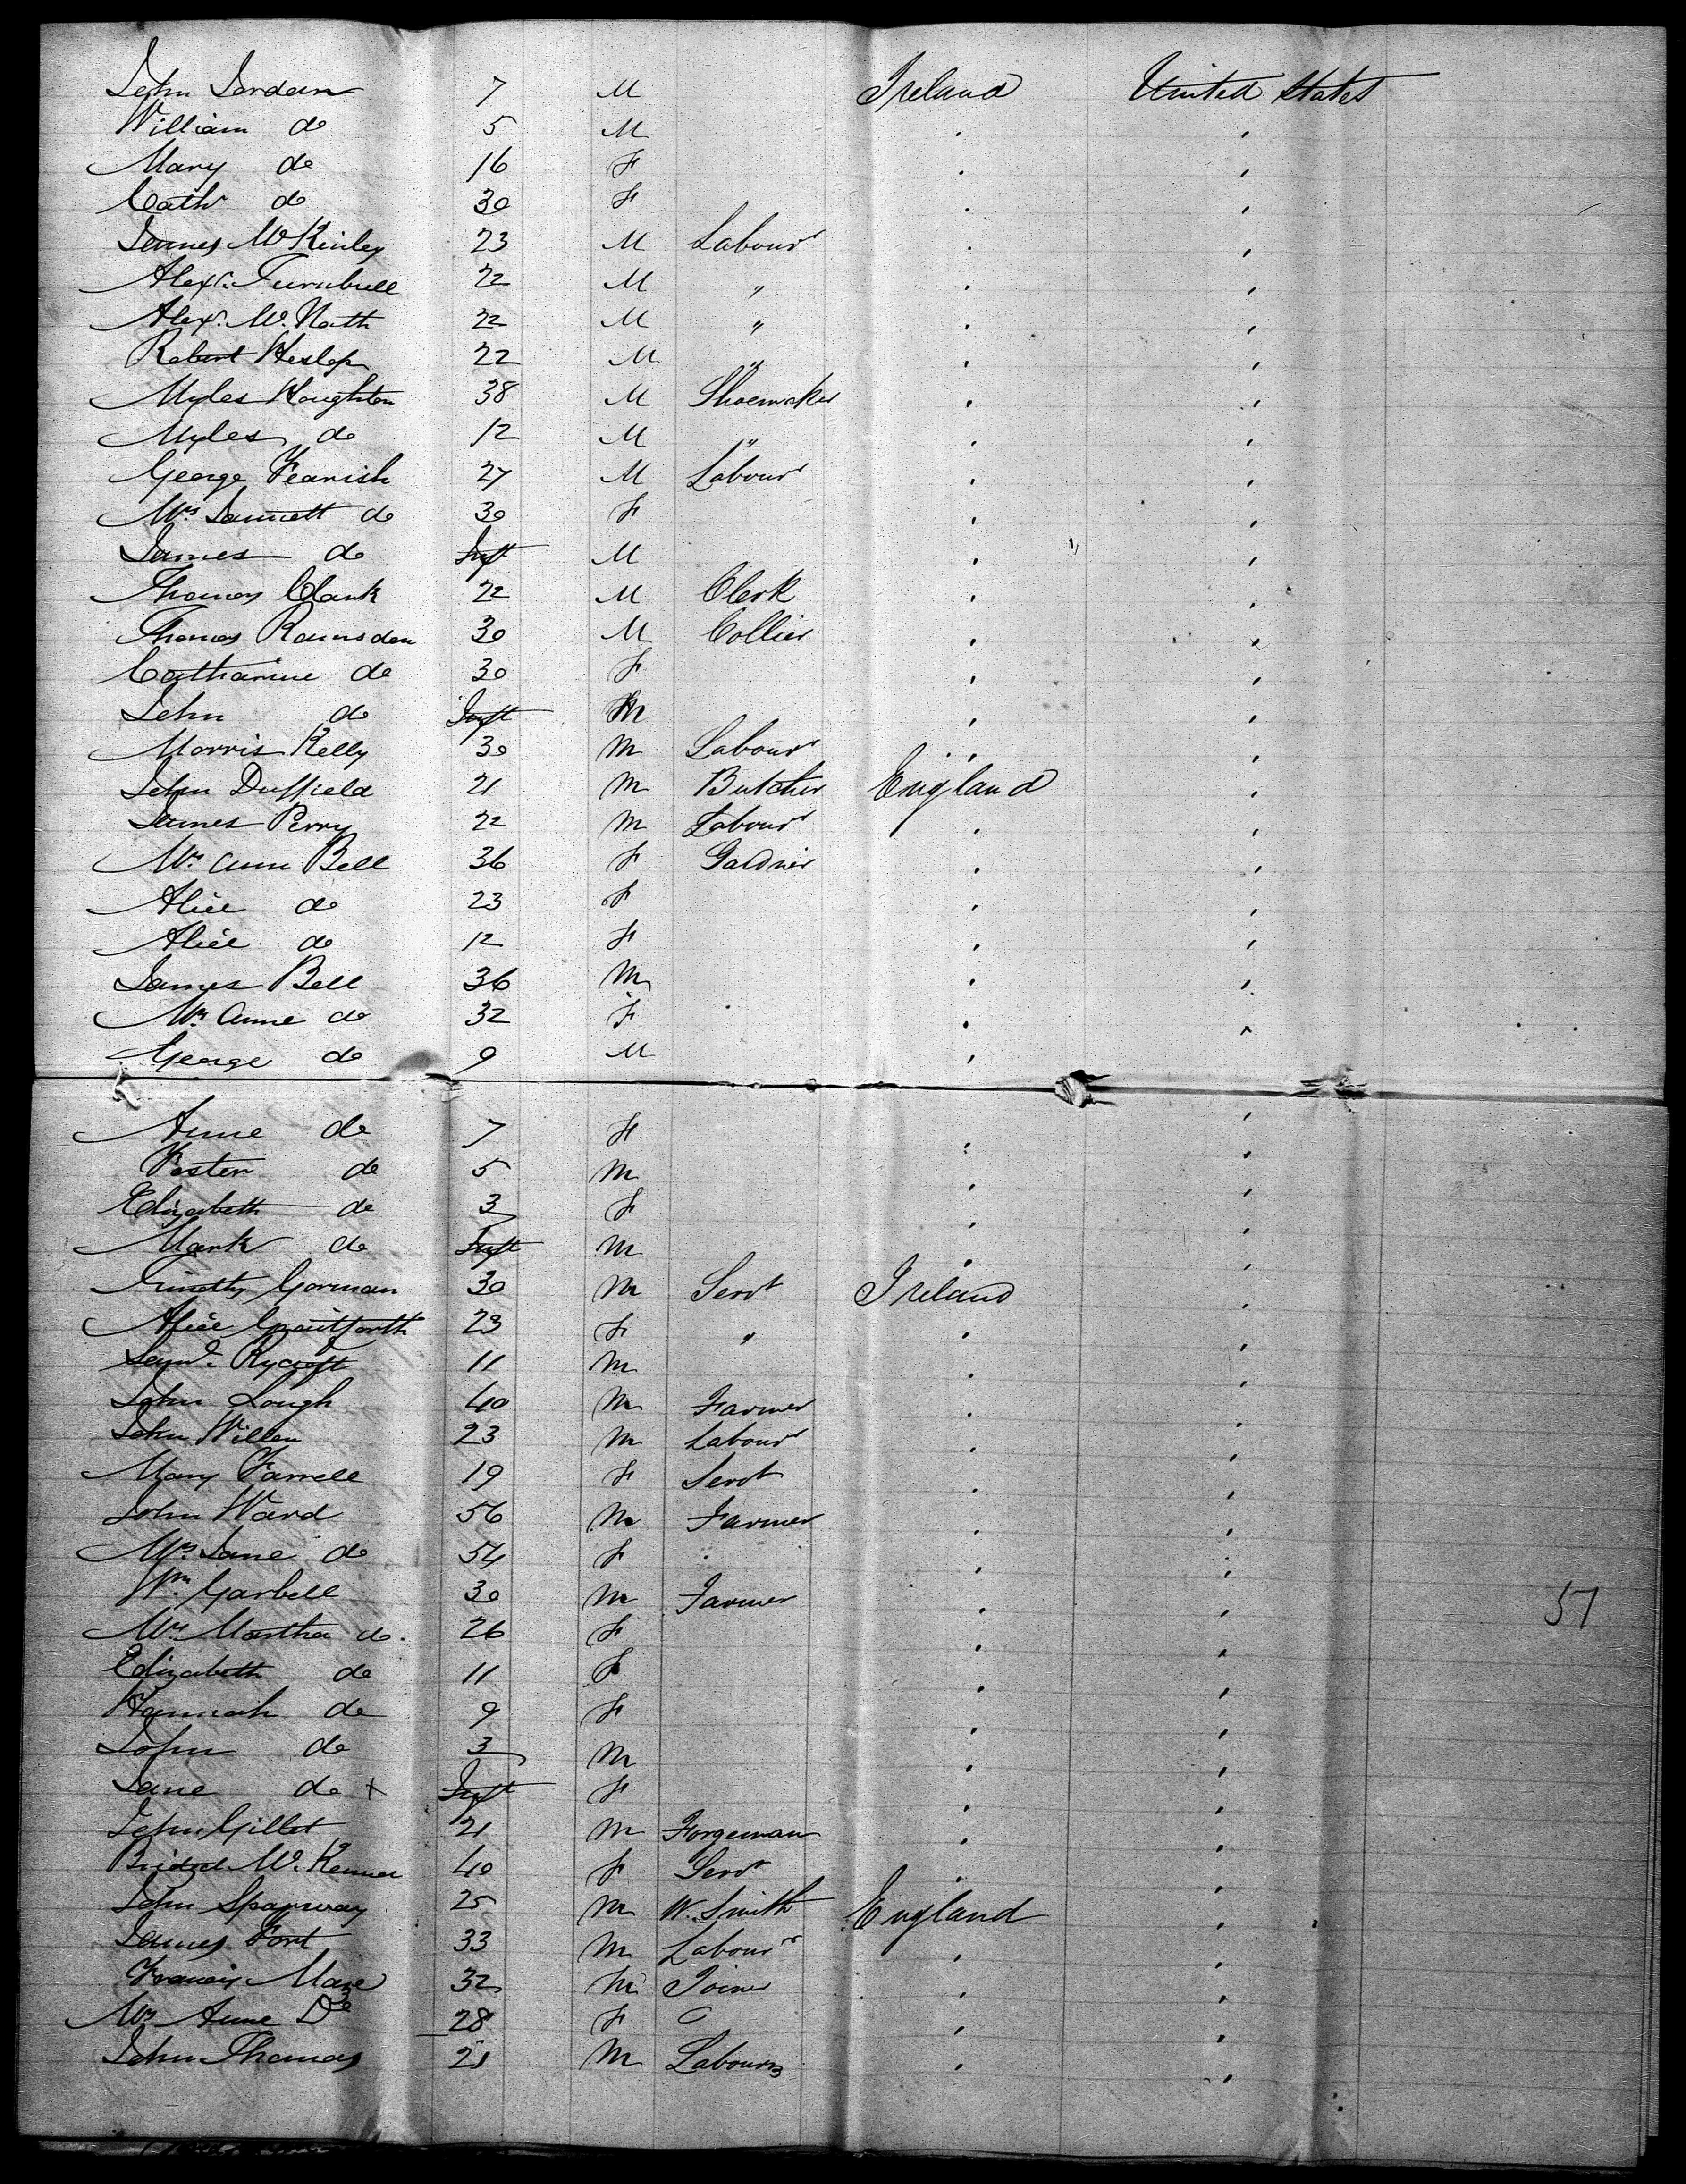 John Jordan 7 M Ireland United States
William do 5 M , ,
Mary do 16 F , ,
Cathr do 30 F , ,
James McKinley 23 M Labourr , ,
Alexr. Turnbull 22 M " , ,
Alexr. Mc.Nath 22 M " , ,
Robert Heslop 22 M " , ,
Myles Houghton 38 M Shoemaker , ,
Myles do 12 M " , ,
George Fearish 27 M Labourr , ,
Mrs Jannett do 30 F , ,
James do Inft M , ,
Thomas Clark 22 M Clerk , ,
Thomas Ramsden 30 M Collier , ,
Catharine do 30 F , ,
John do Inft M , ,
Morris Kelly 30 M Labourr , ,
John Duffield 21 M Butcher England ,
James Perry 22 M Labourr , ,
Mrs Ann Bell 36 F Gardner , ,
Alice do 23 F , ,
Alice do 12 F , ,
James Bell 36 M , ,
Mrs Anne do 32 F , ,
George do 9 M , ,
Anne do 7 F , ,
Foster do 5 M , ,
Elizabeth do 3 F , ,
Mark do Inft M , ,
Timothy Gorman 30 M Servt Ireland ,
Alice 23 F " , ,
Saml. Rycroft 11 M , ,
John Lough 40 M Farmer , ,
John Willen 23 M Labourr , ,
Mary Farrell 19 F Servt , ,
John Ward 56 M Farmer , ,
Mrs Jane do 54 F , ,
Wm Garbell 30 M Farmer , ,
Mrs Martha do. 26 F , ,
Elizabeth do 11 F , ,
Hannah do 9 F , ,
John do 3 M , ,
Jane do x Inft F , ,
John Gillet 21 M Forgeman , ,
Bridget Mc. 40 F Servt , ,
John Sparway 25 M W. Smith England ,
James Fort 33 M Labourr , ,
Francis Maze 32 M Joiner , ,
Mrs Anne Do 28 F , ,
John Thomas 21 M Labourer , ,
57